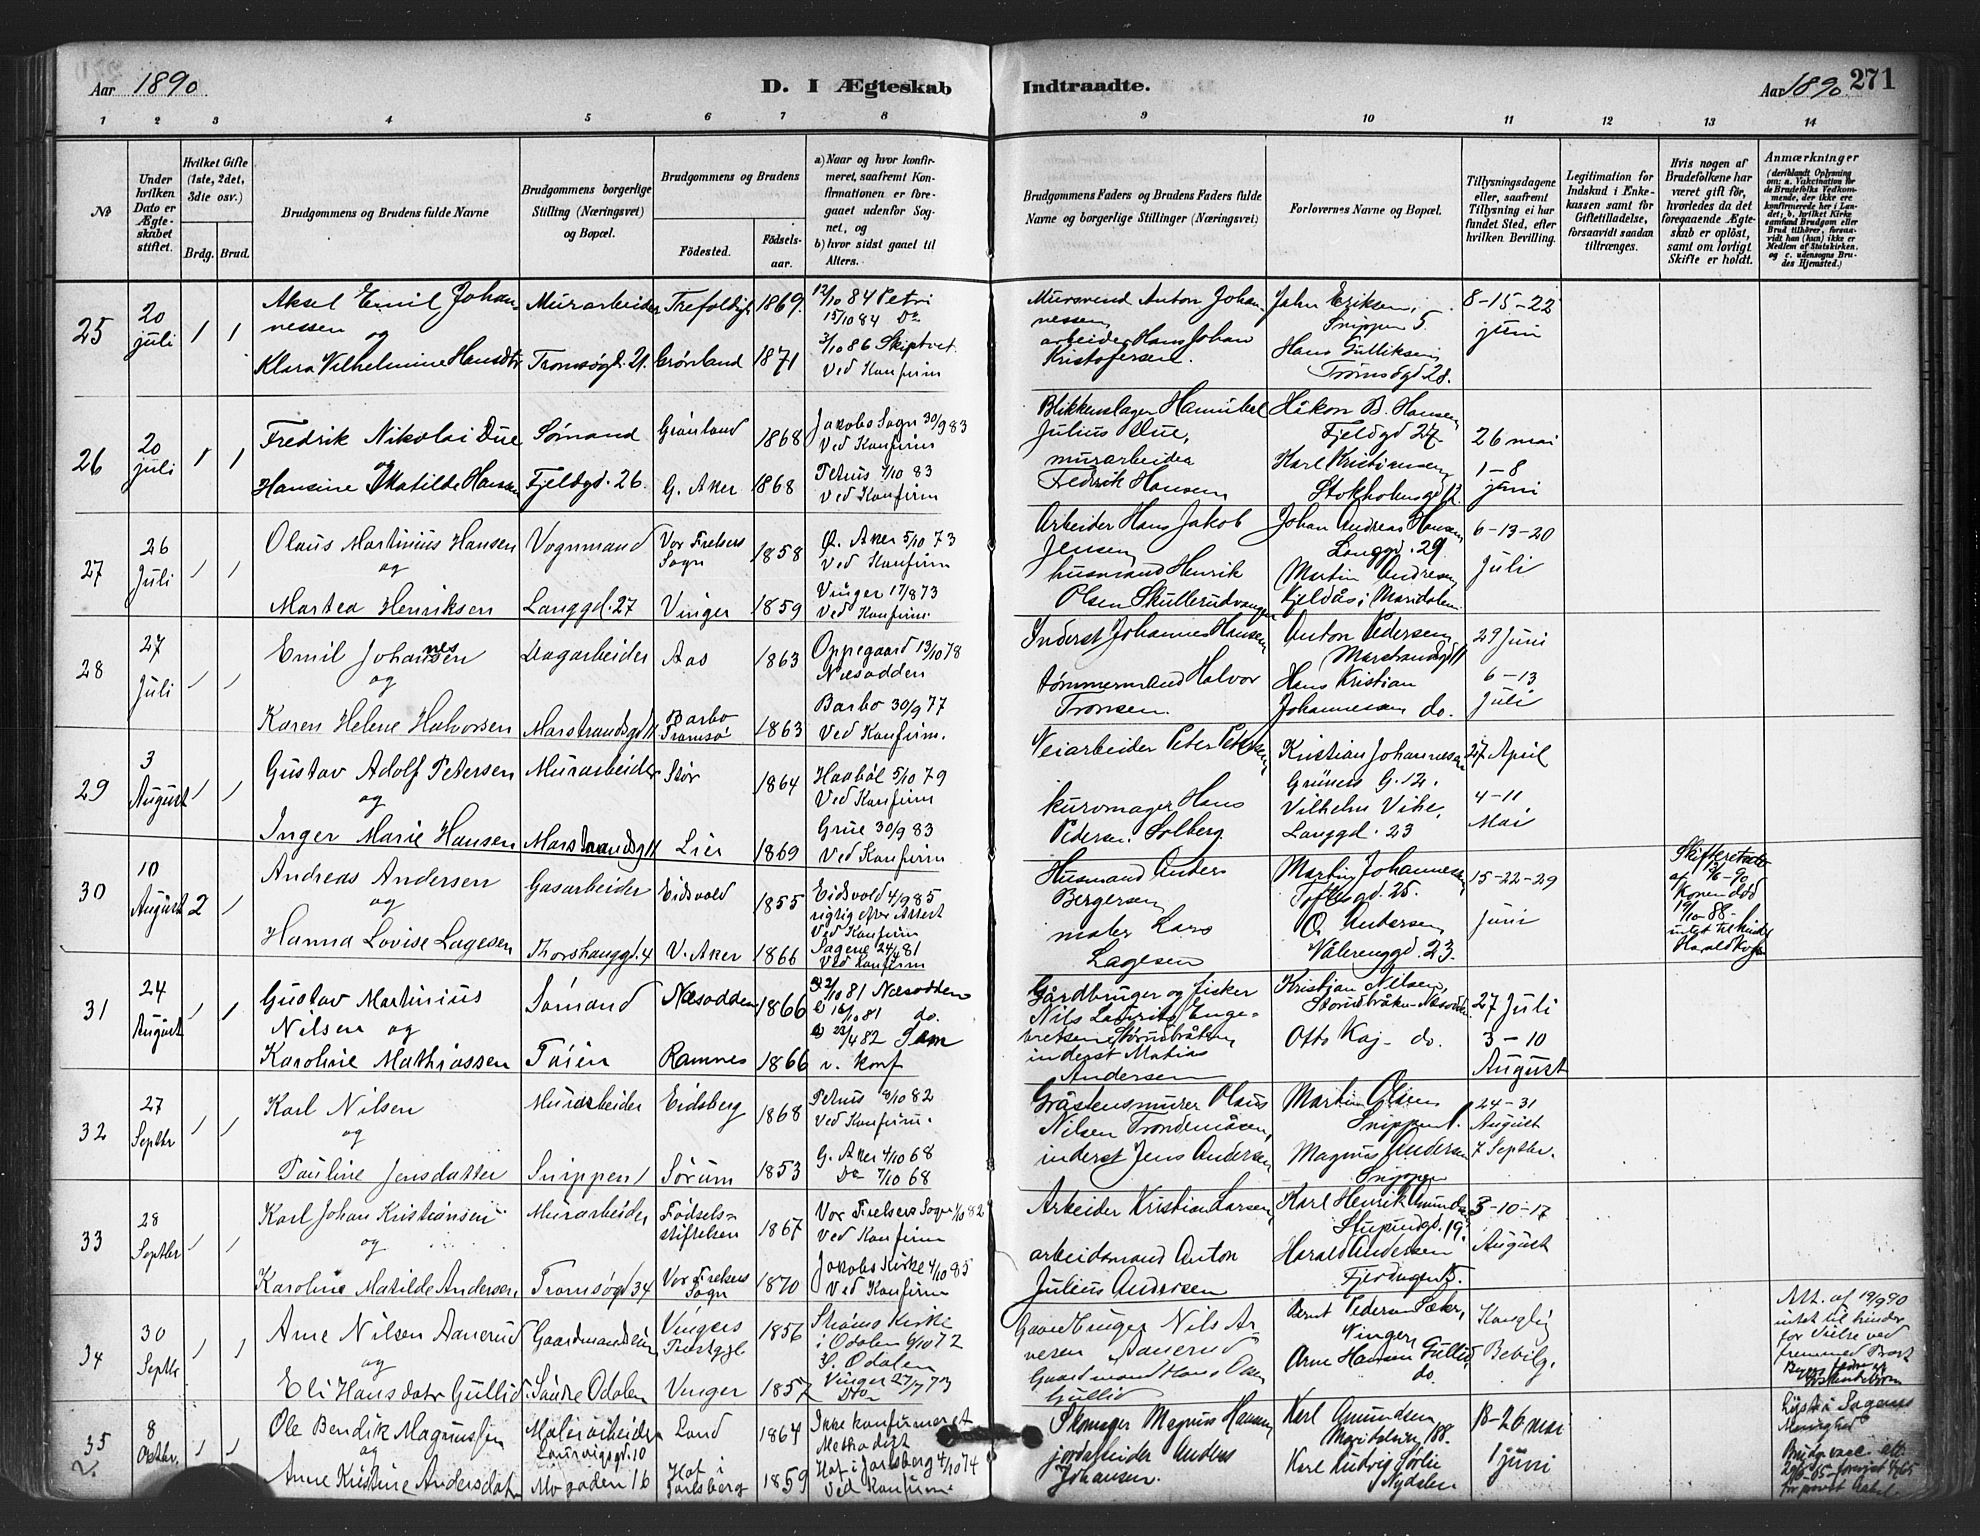 Aar 1890
D. I Ægteskab
Indtraadte.
Aar 1890. 271
1 2 3 4 5 6 7 8 9 10 11 12 13 14
№
Under hvilken Dato er Ægteskabet stiftet.
Hvilket Gifte (1ste, 2det, 3die osv.)
Brdg. Brud.
Brudgommens og Brudens fulde Navne
Brudgommens borgerlige Stilling (Næringsvei) og Bopæl.
Brudgommens og Brudens
Födested.
Födselsaar.
a) Naar og hvor konfirmeret, saafremt Konfirmationen er foregaaet udenfor Sognet, og
b) hvor sidst gaaet til Alters.
Brudgommens Faders og Brudens Faders fulde Navne og borgerlige Stillinger (Næringsvei)
Forlovernes Navne og Bopæl.
Tillysningsdagene eller, saafremt Tillysning ei har fundet Sted, efter hvilken Bevilling.
Legitimation for Indskud i Enkekassen samt for Giftetilladelse, forsaavidt saadan tiltrænges.
Hvis nogen af Brudefolkene har været gift för, hvorledes da det foregaaende Ægteskab er oplöst, samt om lovligt Skifte er holdt.
Anmærkninger
(deriblandt Oplysning om: a. Vakcination for de Brudefolks Vedkommende, der ikke ere konfirmerede her i Landet; b. hvilket Kirkesamfund Brudgom eller Brud tilhörer, forsaavidt han (hun) ikke er Medlem af Statskirken, og c. udensogns Brudes Hjemsted.)
25
20 juli
1 1
Aksel Emil Johannessen
og
Klara Vilhelmine Hansdtr
Murarbeider
Tromsögd. 21.
Trefoldigh
Grönland
1869.
1871
12/10 84 Petri
15/10 84 Do
3/10 86 Skiptvet
Ved Konfirm
Mursvend Anton Johannessen
arbeider Hans Johan Kristofersen.
John Eriksen, Snippen 5.
Hans Gulliksen, Tromsögd 28.
8-15-22 juni
26
20 juli
1 1
Fredrik Nikolai Due
og
Hansine Matilde Hansen
Sömand
Fjeldgd. 26.
Grönland
G. Aker
1868
1868
Jakobs Sogn 30/9 83
Ved Konfirm
Petrus 7/10 83
Ved Konfirm
Blikkenslager Hannibal Julius Due,
murarbeider Fredrik Hansen
Håkon B. Hansen Fjeldgd 27
Karl Kristiansen Stokholmsgd 12.
26 mai
1-8 juni
27
26 Juli
1 1
Olaus Martinius Hansen
og
Martea Henriksen
Vognmand
Langgd. 27
Vor Frelsers Sogn
Vinger
1858
1859
Ö. Aker 5/10 73
Ved Konfirm
Vinger 17/8 73
Ved Konfirm.
Arbeider Hans Jakob Jensen
husmand Henrik Olsen Skullerudvangen
Johan Andreas Hansen Langgd. 29
Martin Andresen Kjeldås i Maridalen
6-13-20 Juli
28
27 Juli
1 1
Emil Johannesen
og
Karen Helene Halvorsen
Dagarbeider
Marstrandsgd 11
Aas
Barbo Tromsö
1863
1863
Oppegaard 13/10 78
Næsodden
Barbo 30/9 77
Ved Konfirm.
Inderst Johannes Hansen
tömmermand Halvor Tronsen.
Anton Pedersen, Marstrandsgd 11
Hans Kristian Johannesen do.
29 Juni
6-13 Juli
29
3 August
1 1
Gustav Adolf Petersen
og
Inger Marie Hansen
Murarbeider
Marstrandsgd 11
Stör
Lier
1864
1869
Haaböl 5/10 79
Ved Konfirm
Grue 30/9 83
Ved Konfirm
Veiarbeider Peter Petersen,
kurvmager Hans Pedersen Solberg.
Kristian Johannesen Grüners G. 12.
Vilhelm Vihe, Langgd. 23
27 April
4-11 Mai
30
10 August
2 1
Andreas Andersen
og
Hanna Lovise Lagesen
Gasarbeider
Thorshauggd. 4
Eidsvold
V. Aker
1855
1866
Eidsvold 4/9 85
rigtig efter Attest
Ved Konfirm
Sagene 24/4 81
Ved Konfirm
Husmand Anders Bergersen
maler Lars Lagesen
Martin Johannesen, Toftesgd. 25.
O. Andersen Vålerenggd. 23.
15-22-29 Juni
Skifteretsatt
af 12/6-90
Konen död
19/10-88-
intet til hinder
31
24 August
1 1
Gustav Martinius Nilsen og
Karoline Mathiassen
Sömand
Töien
Næsodden
Ramnes
1866
1866
2/10 81 Næsodden
16/10 81 do.
23/4 82 Sam
v. Konf
Gårdbruger og fisker Nils Lauritz Engebretsen,
inderst Matias Andersen
Kristian Nilsen,
Otto Kaj- do.
27 Juli
3-10 August
32
27 Septbr
1 1
Karl Nilsen
og
Pauline Jensdatter
Murarbeider
Snippen 1
Eidsberg
Sörum
1868
1853
Petrus 8/10 82
Ved Konfirm.
G. Aker 4/10 68
Do 7/10 68
Gråstensmurer Olaus Nilsen Trondemåsen,
inderst Jens Andersen
Martin Olsen Snippen 1.
Magnus Andersen Snippen
24-31 August
7 Septbr.
33
28 Septbr
1 1
Karl Johan Kristiansen
og
Karoline Matilde Andersen,
Murarbeider
Tromsögd 34
Födselsstiftelsen
Vor Frelsers Sogn
1867
1870
Vor Frelsers Sogn 1/10 82
Ved Konfirm
Jakobs Kirke 4/10 85
Ved Konfirm
Arbeider Kristian Larsen,
arbeidsmand Anton Julius Andersen
Karl Henrik Amundsen Stupindgd. 19.
Harald Andersen Fjerdingen 5.
3-10-17 August
34
30 Septbr
1 1
Arne Nilsen Aanerud
og
Eli Hansdatr Gullid
Gaardmandssön
Söndre Odalen
Vingers Prestgjl
Vinger
1856
1857
Ströms Kirke
i Odalen 6/10 72
S. Odalen
Vinger 27/7 73
Do
Gaardbruger Nils Arnesen Aanerud
Gaardmand Hans Olsen Gullid
Bernt Pedersen Sæter, Vinger,
Arne Hansen Gullid, do.
Konglig Bevilg.
Att. af 19/9 90
intet til hinder
for Vielse ved
fremmed Prest
35
8 Oktbr.
1 1
Ole Bendik Magnussen
og
Anne Kristine Andersdatr
Malerarbeider
Laurvigsgd. 10
Mogaden 16
Land
Hof i Jarlsberg
1864
1859
Ikke konfirmeret
Methodist
Hof i Jarlsberg 4/10 74
Ved Konfirm.
Skomager Magnus Hansen,
jordarbeider Anders Johansen.
Karl Amundsen Maridalsvn 188.
Karl Ludvig Sörlie Nydalen
18-26 mai
1 juni
Lyst i Sagenes Menighed